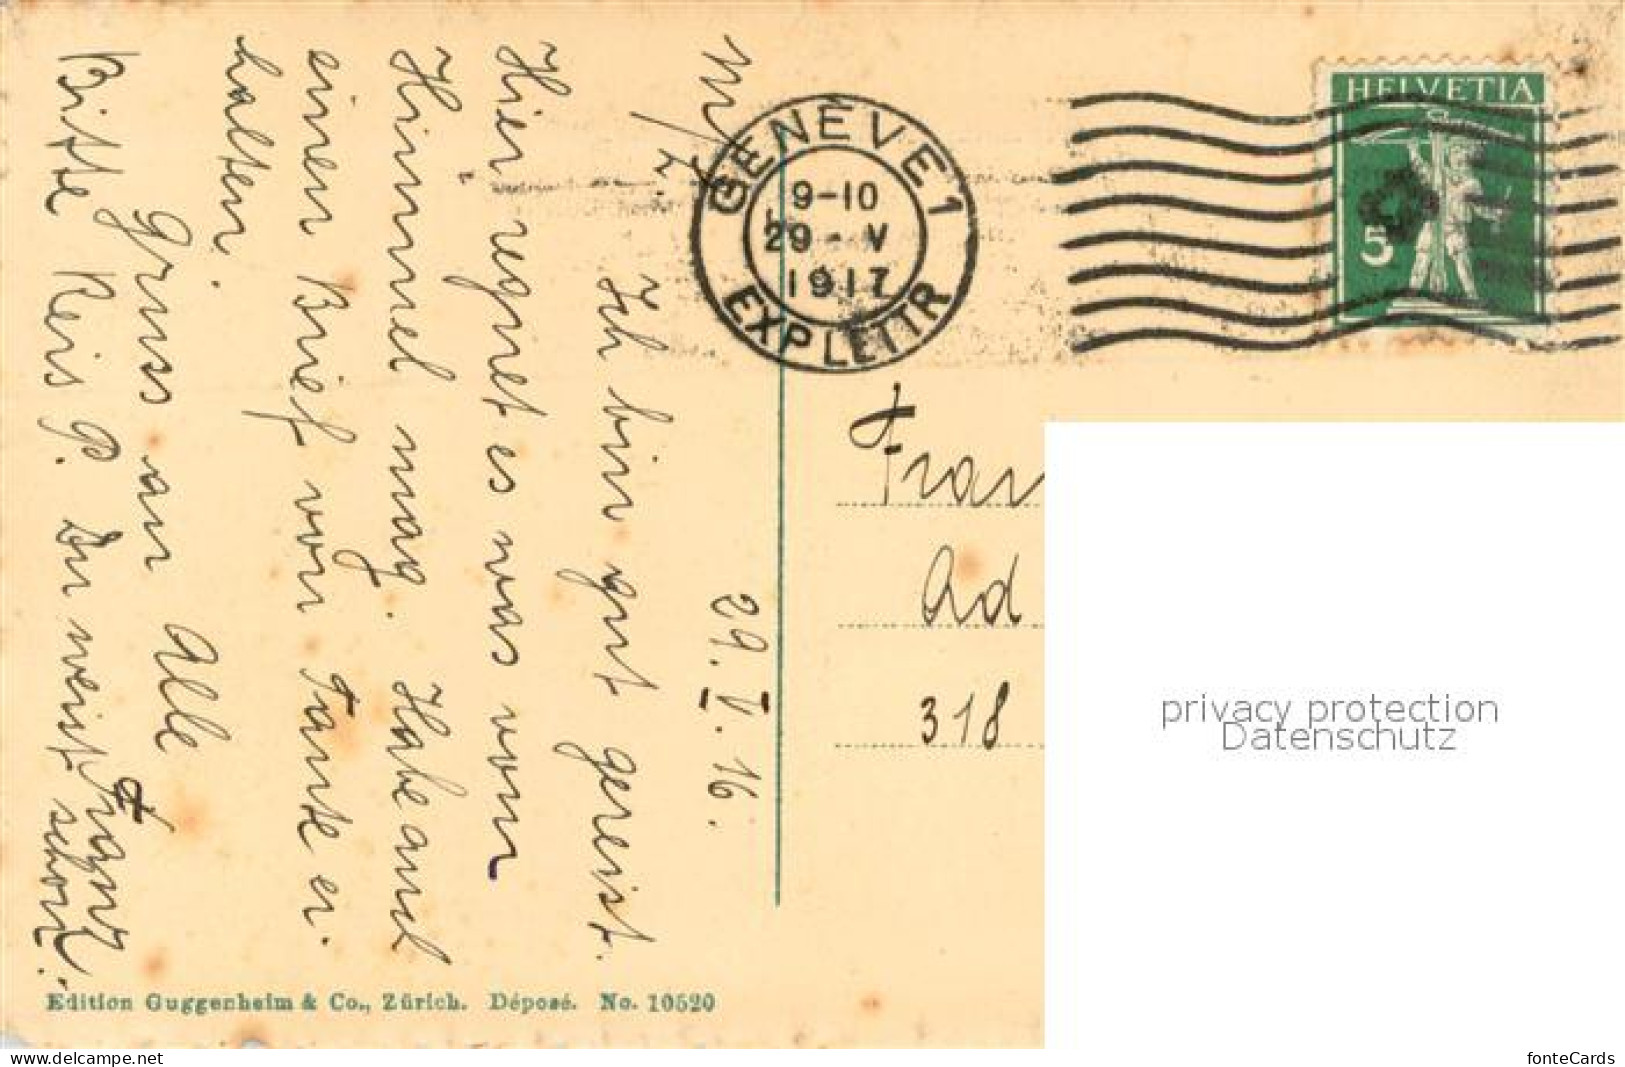 29. V. 16.
Ich bin gut gereist.
Hier regnet es was vom
Himmel mag. Habe auch
einen Brief von Tante er-
halten.
Gruss an Alle
Franz
Bitte Reis P. Du weist schon.
GENÈVE 1
9-10
29-V
1917
EXP. LETTR
HELVETIA
5
Fran
Ad
318
privacy protection
Datenschutz
Edition Guggenheim & Co., Zürich. Déposé. No. 10520
www.delcampe.net
fonteCards